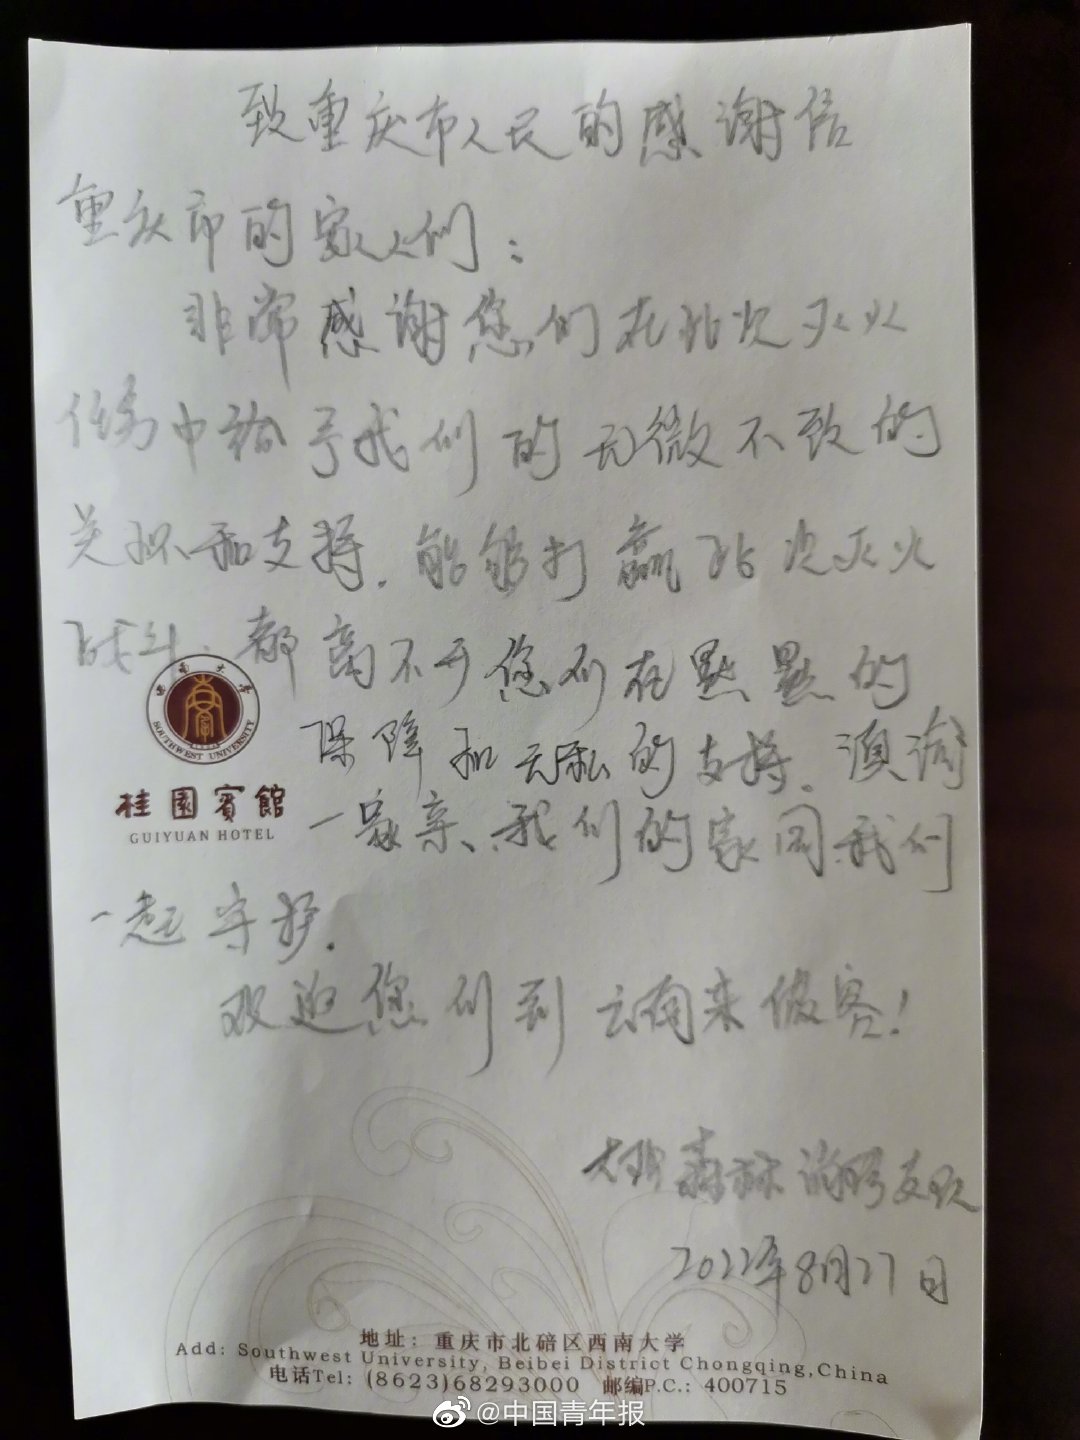 致重庆市人民的感谢信
重庆市的家人们：
非常感谢您们在此次灭火
任务中给予我们的无微不致的
关怀和支持，能够打赢此次灭火
战斗，都离不开您们在默默的
保障和无私的支持。滇渝
一家亲、我们的家园我们
一起守护。
欢迎您们到云南来做客！
大理森林消防支队
2022年8月27日
西南大学
SOUTHWEST UNIVERSITY
桂園賓館
GUIYUAN HOTEL
地址：重庆市北碚区西南大学
Add: Southwest University, Beibei District Chongqing,China
电话Tel: (8623)68293000 邮编P.C.: 400715
@中国青年报